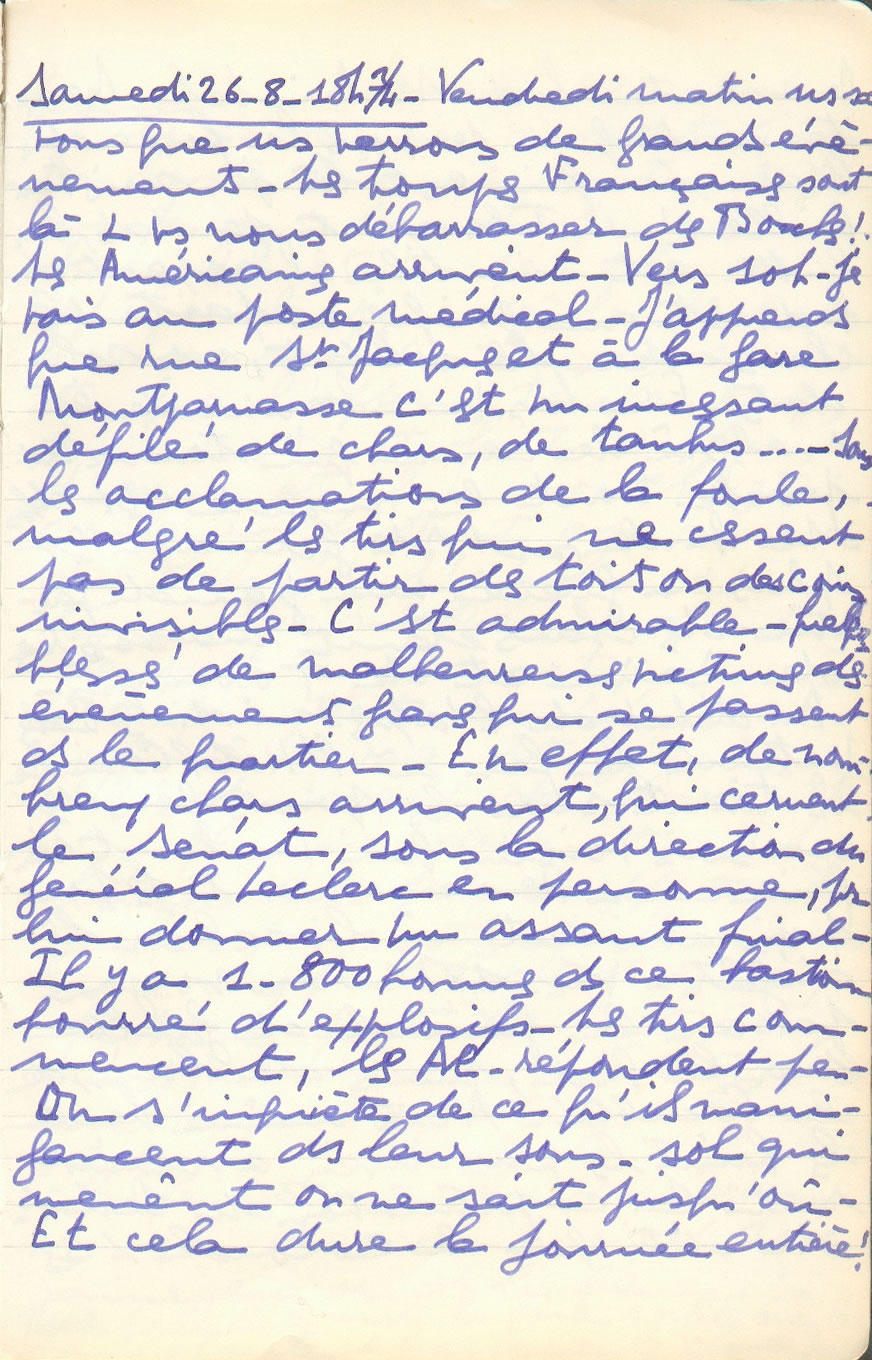 Samedi 26-8-18h 3/4 - Vendredi matin ns sa
vons que ns verrons de grands évè-
nements - Les troupes Françaises sont
là & vs nous débarrasser des Boches!
Les Américains arrivent - Vers 10h - Je
vais au poste médical - J'apprends
que rue St Jacques et à la gare
Montparnasse c'est un incessant
défilé de chars, de tanks .... Sous
les acclamations de la foule,
malgré les tirs qui ne cessent
pas de partir des toits ou des coins
invisibles - C'est admirable - quelques
blessés de malheureuses victimes des
évènements graves qui se passent
ds le quartier - En effet, de nom-
breux chars arrivent, qui cernent
le Sénat, sous la direction du
général Leclerc en personne, pr
lui donner un assaut final -
Il y a 1-800 hommes ds ce bastion
bourré d'explosifs - Les tirs com-
mencent, les All - répondent peu -
On s'inquiète de ce qu'ils mani-
gancent ds leur sous-sol qui
mènent on ne sait jusqu'où -
Et cela dure la journée entière!